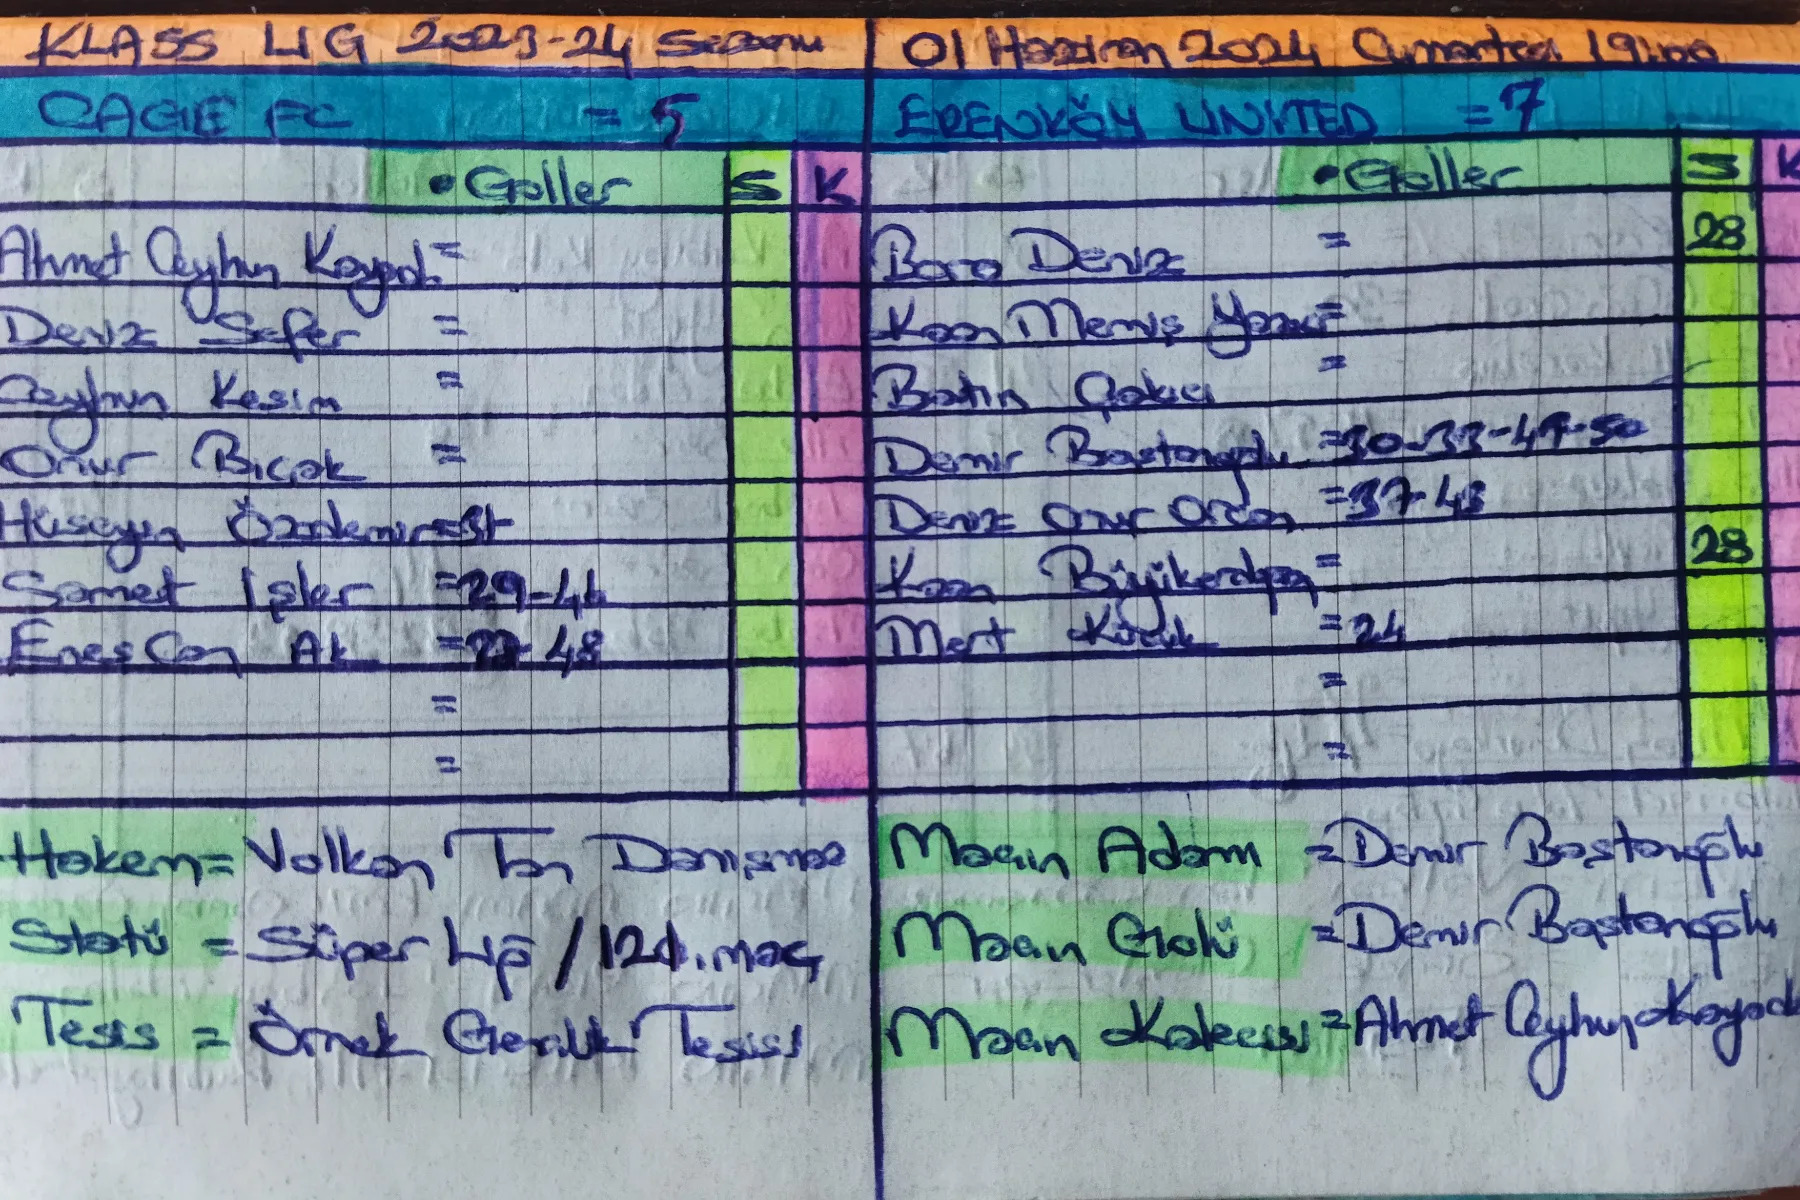 KLASS LIG 2023-24 Sezonu
CAGIE FC = 5
• Goller S K
Ahmet Ceyhun Kayadı =
Deniz Sefer =
Ceyhun Kesim =
Onur Bıçak =
Hüseyin Özdemir =
Samet İşler = 29-46
Enes Can Ak = 48
=
=
Hakem = Volkan Tan Danışmaz
Statü = Süper Lig / 12d. maç
Tesis = Örnek Gençlik Tesisi
01 Haziran 2024 Cumartesi 19:00
ERENKÖY UNITED = 7
• Goller S K
Bora Deniz = 28
Kaan Memiş Yanar =
Batın Çakıcı =
Demir Baştanoğlu = 30-33-49-50
Deniz Onur Ordan = 37-43
Kaan Büyükerdoğan = 28
Mert Küçük = 24
=
=
Maçın Adamı = Demir Baştanoğlu
Maçın Golü = Demir Baştanoğlu
Maçın Kalecisi = Ahmet Ceyhun Kayadı